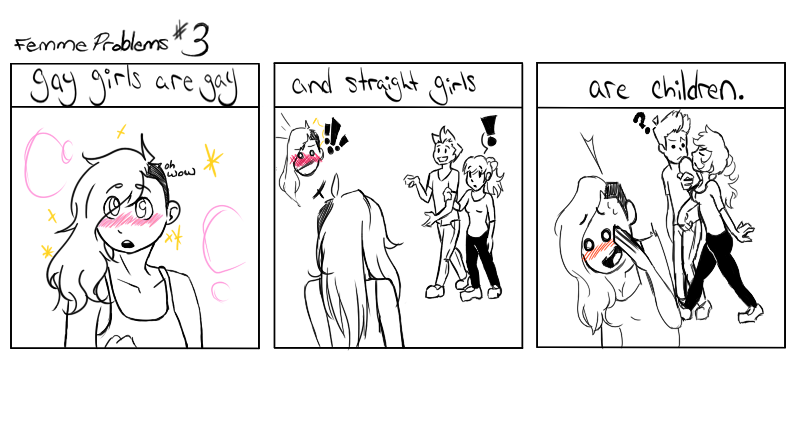 Femme Problems #3
gay girls are gay
oh
wow
and straight girls
!!!
!
are children.
?.